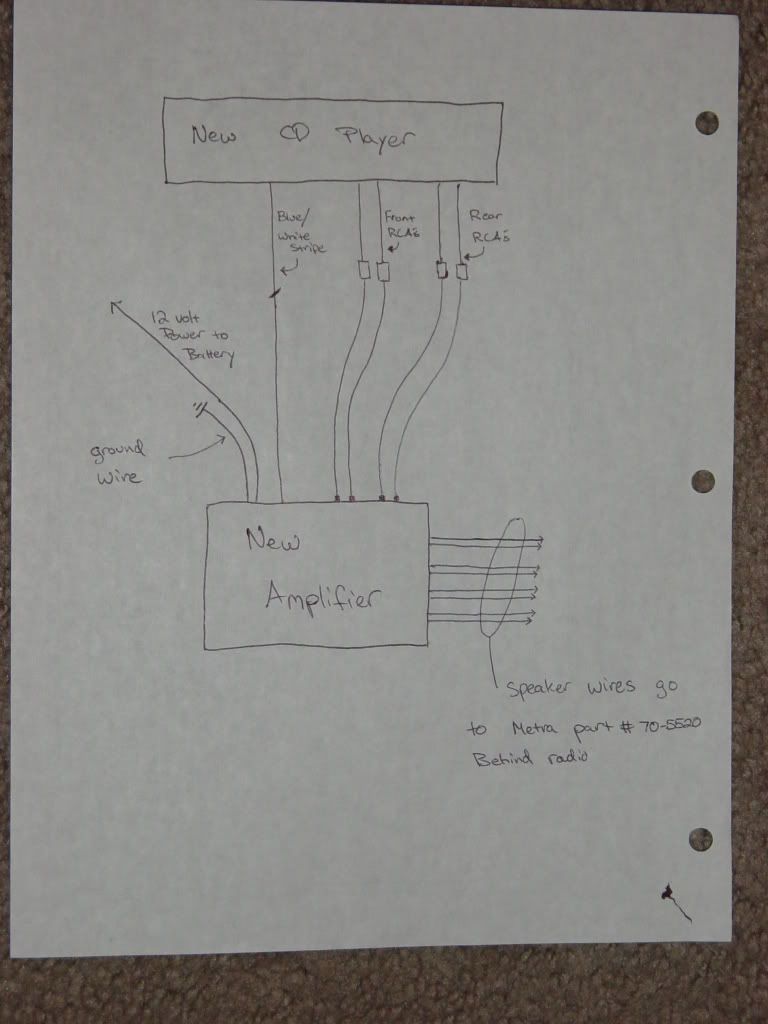 New CD Player
Blue/
white
stripe
Front
RCA's
Rear
RCA's
12 volt
Power to
Battery
ground
wire
New
Amplifier
Speaker wires go
to Metra part # 70-5520
Behind radio